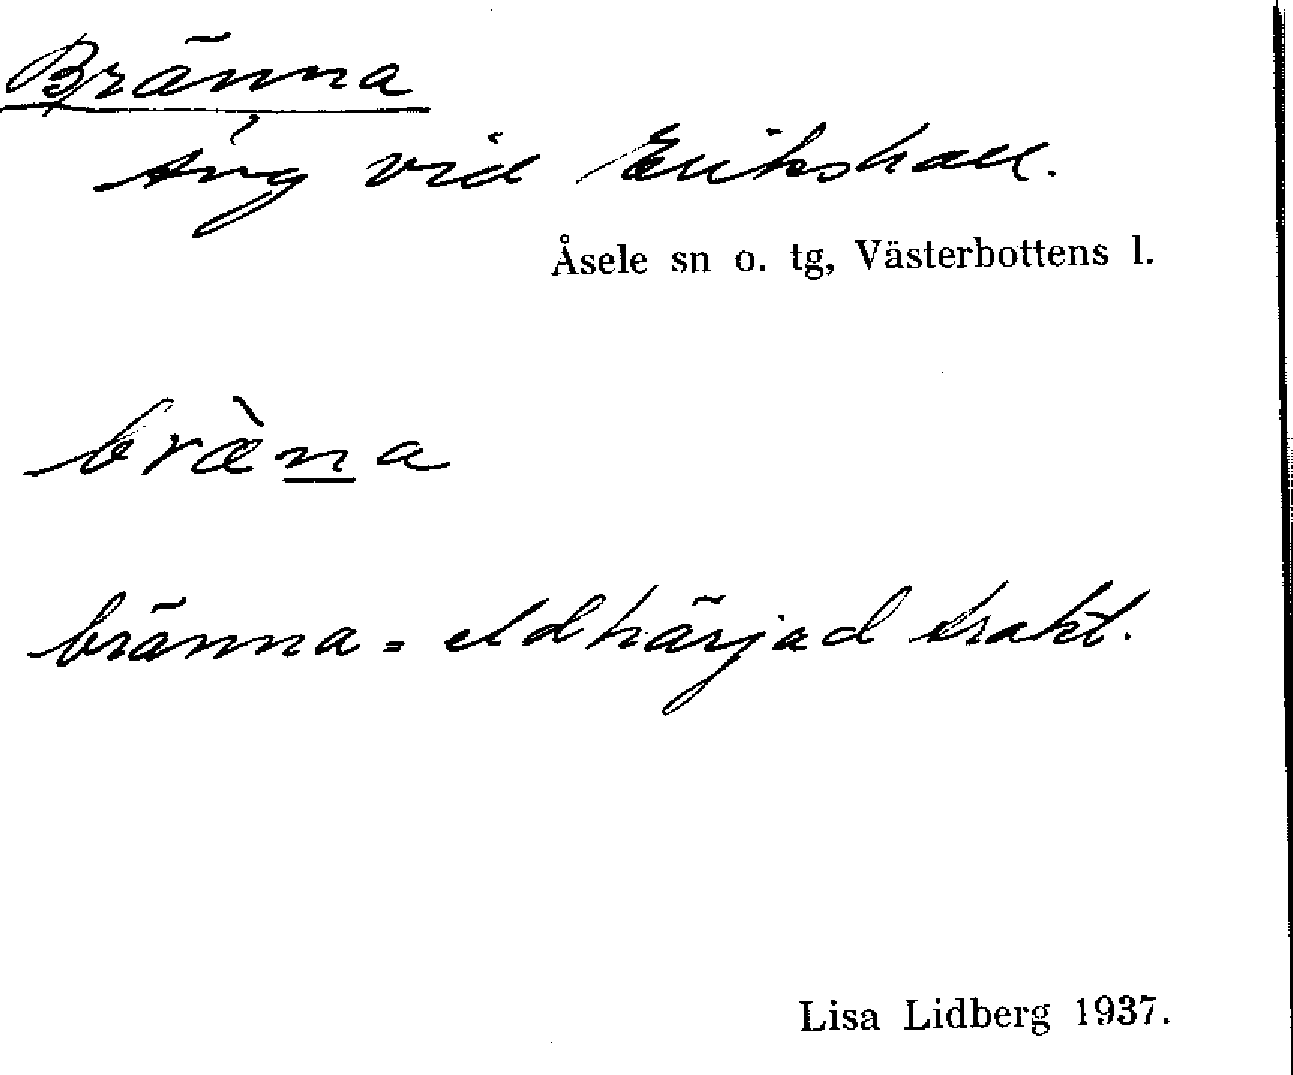 Bränna
Äng vid Erikshall.
Åsele sn o. tg, Västerbottens l.
bræ̀n̲a
bränna = eldhärjad trakt.
Lisa Lidberg 1937.